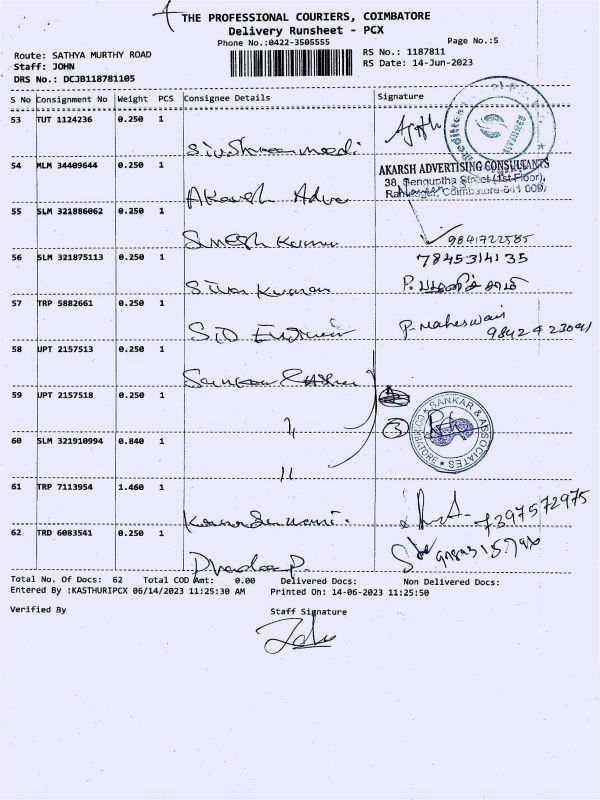 THE PROFESSIONAL COURIERS, COIMBATORE
Delivery Runsheet - PCX
Phone No.:0422-3505555
Page No.:5
Route: SATHYA MURTHY ROAD
Staff: JOHN
DRS No.: DCJB118781105
RS No.: 1187811
RS Date: 14-Jun-2023
S No Consignment No Weight PCS Consignee Details Signature
53 TUT 1124236 0.250 1
54 MLM 34409644 0.250 1
AKARSH ADVERTISING CONSULTANTS
38, Senguptha Street (1st Floor),
Ramnagar, Coimbatore-641 009
Akarsh Adve
55 SLM 321886062 0.250 1
Suresh Kumar 9841722585
56 SLM 321875113 0.250 1 7845314135
Siva Kumar
57 TRP 5882661 0.250 1
P. Maheswari
9842423041
58 UPT 2157513 0.250 1
59 UPT 2157518 0.250 1
"
60 SLM 321910994 0.840 1
3
SANKAR & ASSOCIATES
COIMBATORE
"
61 TRP 7113954 1.460 1
7397572975
62 TRD 6083541 0.250 1
Total No. Of Docs: 62 Total COD Amt: 0.00 Delivered Docs: Non Delivered Docs:
Entered By :KASTHURIPCX 06/14/2023 11:25:30 AM Printed On: 14-06-2023 11:25:50
Verified By Staff Signature